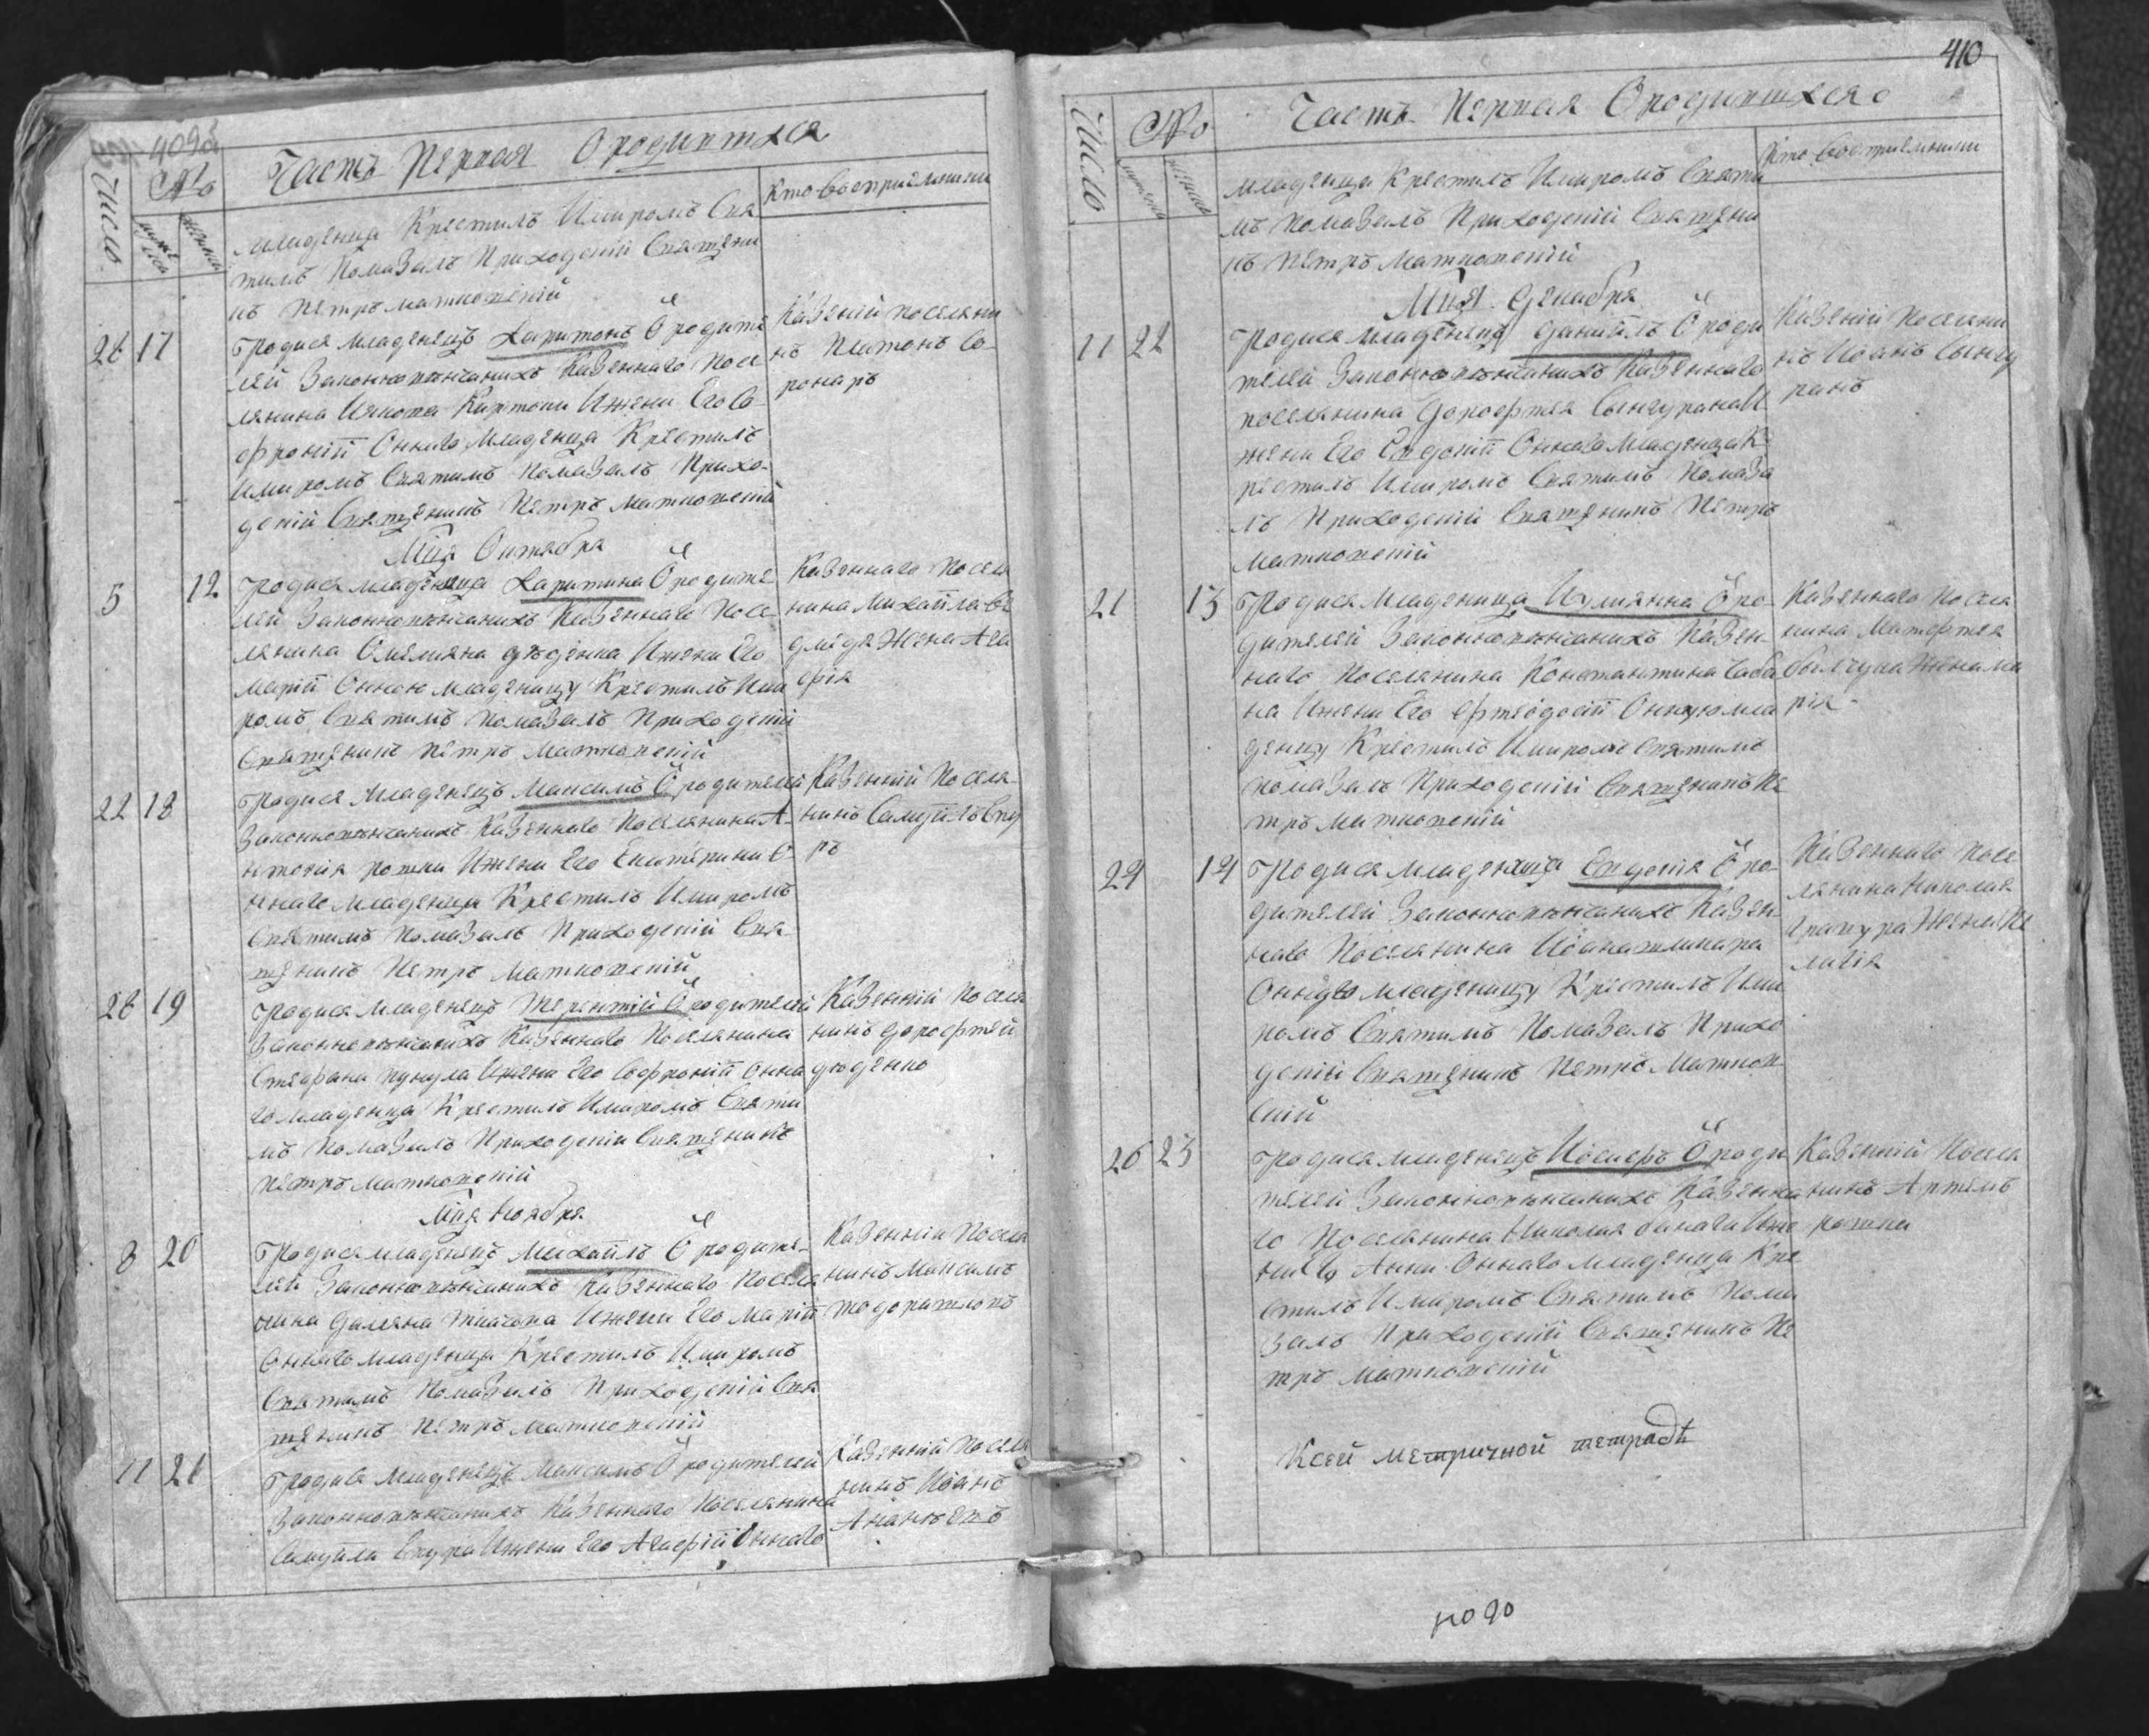 409
Часть Первая О родившхся
Число
№
мужеска
женска
Кто восприемники
младенца Крестилъ Имиромъ Свя
тимъ Помазалъ Приходскій Священи
къ Петръ Матковскій
26 17
Родися младенецъ Харитонъ Ѿ родите
лей Законновѣнчаныхъ Казеннаго посе
лянина Иякова Ижени Его Со
фроніи Оннаго Младенца Крестилъ
Имиромъ Святимъ Помазалъ Прихо
дскій Священикъ Петръ Матковскій
Казеній поселяни
нъ Платонъ Бо
ронаръ
Мця Октября
5 12
Родися младеница Харитина Ѿ родите
лей Законновѣнчаныхъ Казеннаго Посе
лянина Омелияна Ижени Его
Маріи Онною младеницу Крестилъ Ими
ромъ Святимъ Помазалъ Приходскій
Священикъ Петръ Матковскій
Казеннаго Поселя
нина Михаила
Жена Ага
фія
22 18
Родися Младенецъ Максимъ Ѿ родителей
Законновѣнчаныхъ Казеннаго Поселянина А
нтонія Ротки Ижени Его Екатерини О
ннаго младенца Крестилъ Имиромъ
Святимъ Помазалъ Приходскій Свя
щеникъ Петръ Матковскій
Казенній Поселя
нинъ Самуилъ Спу
ръ
28 19
Родися Младенецъ Терентій Ѿ родителей
Законновѣнчаныхъ Казеннаго Поселянина
Стефана Ижени Его Софроніи Онна
го младенца Крестилъ Имиромъ Святи
мъ Помазалъ Приходскій Священикъ
Петръ Матковскій
Казенній Поселя
нинъ Дорофтей
Мця Ноября
8 20
Родися младенецъ Михаилъ Ѿ родите
лей Законновѣнчаныхъ Казеннаго Поселя
нина Дамяна Ткачова Ижени Его Маріи
Оннаго младенца Крестилъ Имиромъ
Святимъ Помазалъ Приходскій Свя
щеникъ Петръ Матковскій
Казенній Поселя
нинъ Максимъ
11 21
Родися Младенецъ Максимъ Ѿ родителей
Законновѣнчаныхъ Казеннаго Поселянина
Самуила Спура Ижени Его Агафіи Оннаго
Казенній Поселя
нинъ Иоанъ
410
Часть Первая О родившхся
Число
№
Кто восприемники
младенца Крестилъ Имиромъ Святи
мъ Помазалъ Приходскій Священи
къ Петръ Матковскій
Мця Декабря
11 22
Родися младенецъ Даниилъ Ѿ роди
телей Законновѣнчаныхъ Казеннаго
поселянина Дорофтея Сынгурана И
жени Его Евдокіи Оннаго младенца К
рестилъ Имиромъ Святимъ Помаза
лъ Приходскій Священикъ Петръ
Матковскій
Казеній Поселяни
нъ Иоанъ Сынгу
ранъ
21 13
Родися младеница Иулиянна Ѿ ро
дителей Законновѣнчаныхъ Казен
наго Поселянина Константина
на Ижени Его Фтеодосіи Онную мла
деницу Крестилъ Имиромъ Святимъ
Помазалъ Приходскій Священикъ Пе
тръ Матковскій
Казеннаго Поселя
нина Матфтея
Жена Ма
рія
24 14
Родися младеница Евдокія Ѿ ро
дителей Законновѣнчаныхъ Казен
наго Поселянина Иоана
Онную младеницу Крестилъ Ими
ромъ Святимъ Помазалъ Прихо
дскій Священикъ Петръ Матков
скій
Казеннаго Посе
лянина Николая
Жена Пе
лагія
26 23
Родися младенецъ Иосифъ Ѿ роди
телей Законновѣнчаныхъ Казенна
го Поселянина Николая Ижe
ни Его Анни Оннаго младенца Кре
стилъ Имиромъ Святимъ Пома
залъ Приходскій Священикъ Пе
тръ Матковскій
Казенній Поселя
нинъ Артемъ
Ротка
Ксей метричной тетрадѣ